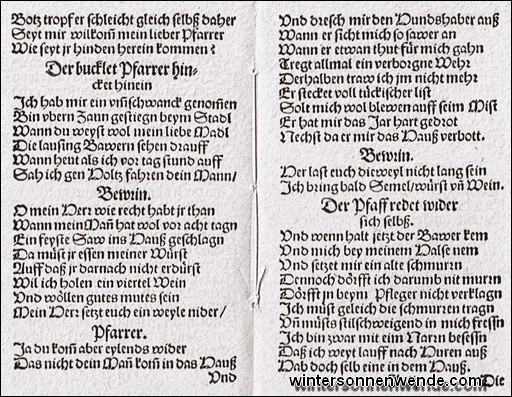 Botz tropf er schleicht gleich selbß daher
Seyt mir wilkom̃ mein lieber Pfarrer
Wie seyt jr hinden herein kommen?
Der bucklet Pfarrer hin-
cket hinein
Ich hab mir ein vm̃schwanck genom̃en
Bin vbern Zaun gestiegn beym Stadl
Wann du weyst wol mein liebe Madl
Die lausing Bawern sehen drauff
Wann heut als ich vor tag stund auff
Sah ich gen Holtz fahren dein Mann/
Bewrin.
O mein Herr wie recht habt jr than
Wann mein Mañ hat wol vor acht tagn
Ein feyste Saw ins Hauß geschlagn
Da müst jr essen meiner Würst
Auff daß jr darnach nicht erdürst
Wil ich holen ein viertel Wein
Vnd wöllen gutes mutes sein
Mein Herr setzt euch ein weyle nider/
Pfarrer.
Ja du kom̃ aber eylends wider
Das nicht dein Mañ kom̃ in das Hauß
Vnd
Vnd dresch mir den Hundshaber auß
Wann er sicht mich so sawer an
Wann er etwan thut für mich gahn
Tregt allmal ein verborgne Wehr
Derhalben traw ich jm nicht mehr
Er stecket voll tückischer list
Solt mich wol blewen auff seim Mist
Er hat mir das Jar hart gedrot
Nechst da er mir das Hauß verbott.
Bewrin.
Herr last euch die weyl nicht lang sein
Ich bring bald Semel/würst vñ Wein.
Der Pfaff redet wider
sich selbß.
Vnd wenn halt jetzt der Bawer kem
Vnd mich bey meinem Halse nem
Vnd setzet mir ein alte schmurrn
Dennoch dörfft ich darumb nit murrn
Dörfft jn beym Pfleger nicht verklagn
Ich must geleich die schmurren tragn
Vñ müsts stilschweigend in mich fressn
Ich bin zwar mit eim Narrn besessn
Daß ich weyt lauff nach Huren auß
Hab doch selb eine in dem Hauß.
Die
wintersonnenwende.com